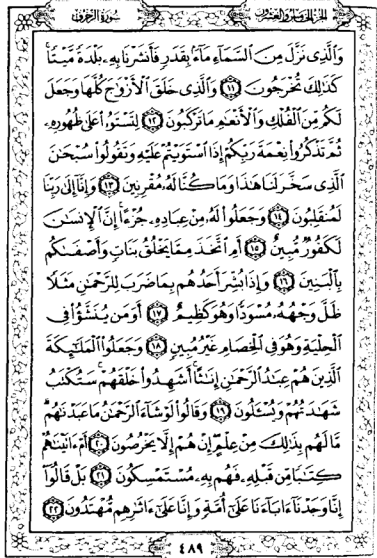 الجزء الخامس والعشرون
سورة الزخرف
وَٱلَّذِى نَزَّلَ مِنَ ٱلسَّمَآءِ مَآءَۢ بِقَدَرٍ فَأَنشَرْنَا بِهِۦ بَلْدَةً مَّيْتًا ۚ
كَذَٰلِكَ تُخْرَجُونَ ۝١١ وَٱلَّذِى خَلَقَ ٱلْأَزْوَٰجَ كُلَّهَا وَجَعَلَ
لَكُم مِّنَ ٱلْفُلْكِ وَٱلْأَنْعَٰمِ مَا تَرْكَبُونَ ۝١٢ لِتَسْتَوُۥا۟ عَلَىٰ ظُهُورِهِۦ
ثُمَّ تَذْكُرُوا۟ نِعْمَةَ رَبِّكُمْ إِذَا ٱسْتَوَيْتُمْ عَلَيْهِ وَتَقُولُوا۟ سُبْحَٰنَ
ٱلَّذِى سَخَّرَ لَنَا هَٰذَا وَمَا كُنَّا لَهُۥ مُقْرِنِينَ ۝١٣ وَإِنَّآ إِلَىٰ رَبِّنَا
لَمُنقَلِبُونَ ۝١٤ وَجَعَلُوا۟ لَهُۥ مِنْ عِبَادِهِۦ جُزْءًا ۚ إِنَّ ٱلْإِنسَٰنَ
لَكَفُورٌ مُّبِينٌ ۝١٥ أَمِ ٱتَّخَذَ مِمَّا يَخْلُقُ بَنَاتٍ وَأَصْفَىٰكُم
بِٱلْبَنِينَ ۝١٦ وَإِذَا بُشِّرَ أَحَدُهُم بِمَا ضَرَبَ لِلرَّحْمَٰنِ مَثَلًا
ظَلَّ وَجْهُهُۥ مُسْوَدًّا وَهُوَ كَظِيمٌ ۝١٧ أَوَمَن يُنَشَّؤُا۟ فِى
ٱلْحِلْيَةِ وَهُوَ فِى ٱلْخِصَامِ غَيْرُ مُبِينٍ ۝١٨ وَجَعَلُوا۟ ٱلْمَلَٰٓئِكَةَ
ٱلَّذِينَ هُمْ عِبَٰدُ ٱلرَّحْمَٰنِ إِنَٰثًا ۚ أَشَهِدُوا۟ خَلْقَهُمْ ۚ سَتُكْتَبُ
شَهَٰدَتُهُمْ وَيُسْـَٔلُونَ ۝١٩ وَقَالُوا۟ لَوْ شَآءَ ٱلرَّحْمَٰنُ مَا عَبَدْنَٰهُم ۗ
مَّا لَهُم بِذَٰلِكَ مِنْ عِلْمٍ ۖ إِنْ هُمْ إِلَّا يَخْرُصُونَ ۝٢٠ أَمْ ءَاتَيْنَٰهُمْ
كِتَٰبًا مِّن قَبْلِهِۦ فَهُم بِهِۦ مُسْتَمْسِكُونَ ۝٢١ بَلْ قَالُوٓا۟
إِنَّا وَجَدْنَآ ءَابَآءَنَا عَلَىٰٓ أُمَّةٍ وَإِنَّا عَلَىٰٓ ءَاثَٰرِهِم مُّهْتَدُونَ ۝٢٢
٤٨٩